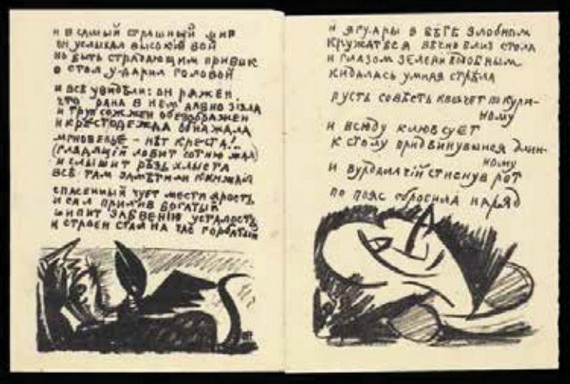 и в самый страшный миг
он услыхал высокий вой
но быть страдающим привык
о стол ударил головой
и всѣ увидѣли: он ражен,
что рана в нем давно зіяла
и труп сожжен обезображен
и крест одежа обнажала
мгновенье – нѣт креста!
(глядящій ловит сотню жал)
и слышит рѣзь хлыста
всѣ там замѣтили кинжал
спасенный чует мести ярость
и сил прилив богатый
шипит забвенію усталость
и строен стал на час горбатый
и ягуары в бѣгѣ злобном
кружатся вѣчно близ стола
и глазом зелени подобным
кидалась умная стрѣла
пусть совѣсть квохчет по кури-
ному
и всюду клюв сует
к столу придвинувшися длин-
ному
и вурдалачій стиснув рот
по пояс сбросила наряд